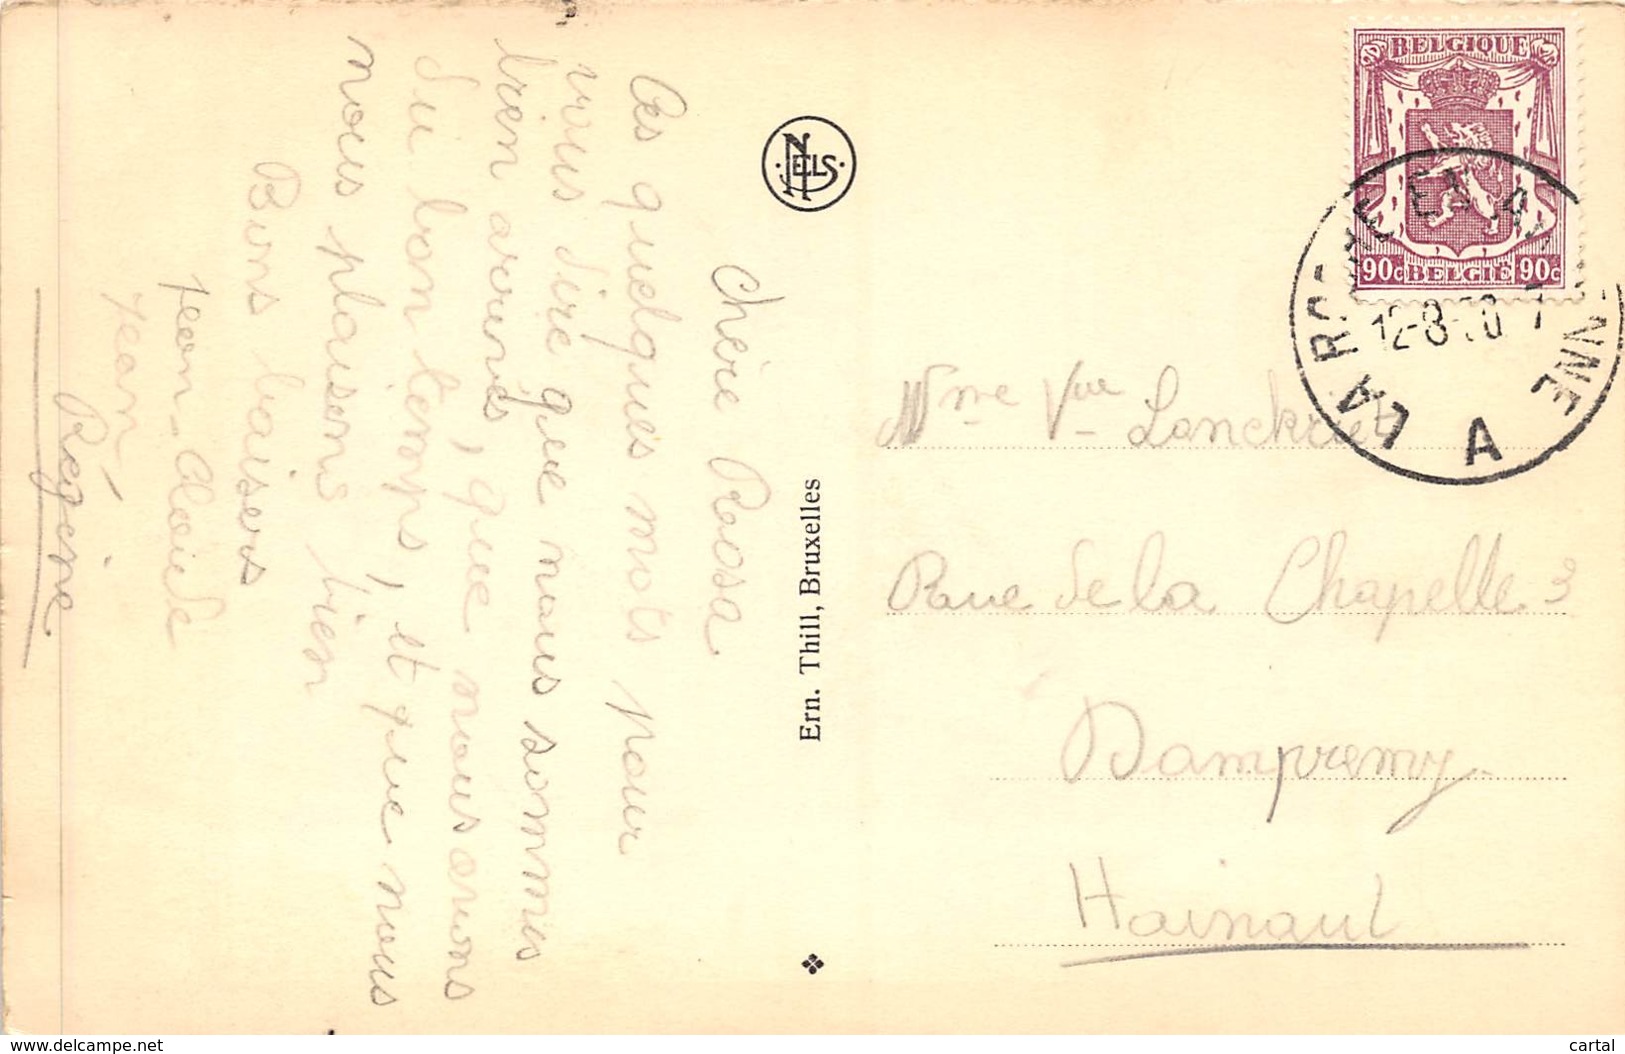 Chère Rosa
Ces quelques mots pour
vous dire que nous sommes
bien arrivés, que nous avons
du bon temps, et que nous
nous plaisons bien
Bons baisers
Jean-Claude
Jean
Régine
NELS
Ern. Thill, Bruxelles
BELGIQUE
90c BELGIË 90c
LA ROCHE EN ARDENNE
12-8-50
A
Mme Vve Lanckriet
Rue de la Chapelle 3
Dampremy
Hainaut
www.delcampe.net
cartal